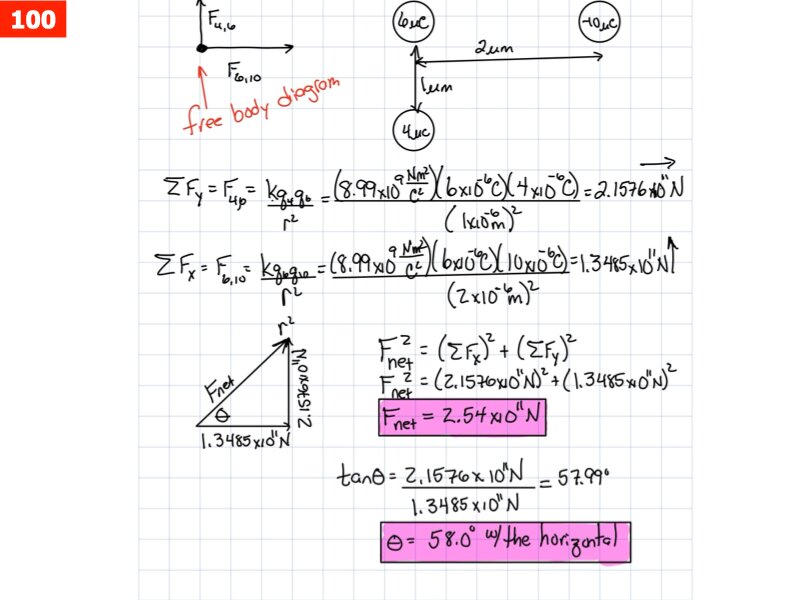 100
F₄,₆
F₆,₁₀
free body diagram
6μC
-10μC
2μm
1μm
4μC
ΣFy = F₄,₆ = kq₄q₆/r² = (8.99x10⁹ Nm²/C²)(6x10⁻⁶C)(4x10⁻⁶C)/(1x10⁻⁶m)² = 2.1576x10¹¹N →
ΣFx = F₆,₁₀ = kq₆q₁₀/r² = (8.99x10⁹ Nm²/C²)(6x10⁻⁶C)(10x10⁻⁶C)/(2x10⁻⁶m)² = 1.3485x10¹¹N ↑
r²
Fnet
θ
2.1576x10¹¹N
1.3485x10¹¹N
Fnet² = (ΣFx)² + (ΣFy)²
Fnet² = (2.1576x10¹¹N)² + (1.3485x10¹¹N)²
Fnet = 2.54x10¹¹N
tanθ = 2.1576x10¹¹N/1.3485x10¹¹N = 57.99°
θ = 58.0° w/the horizontal